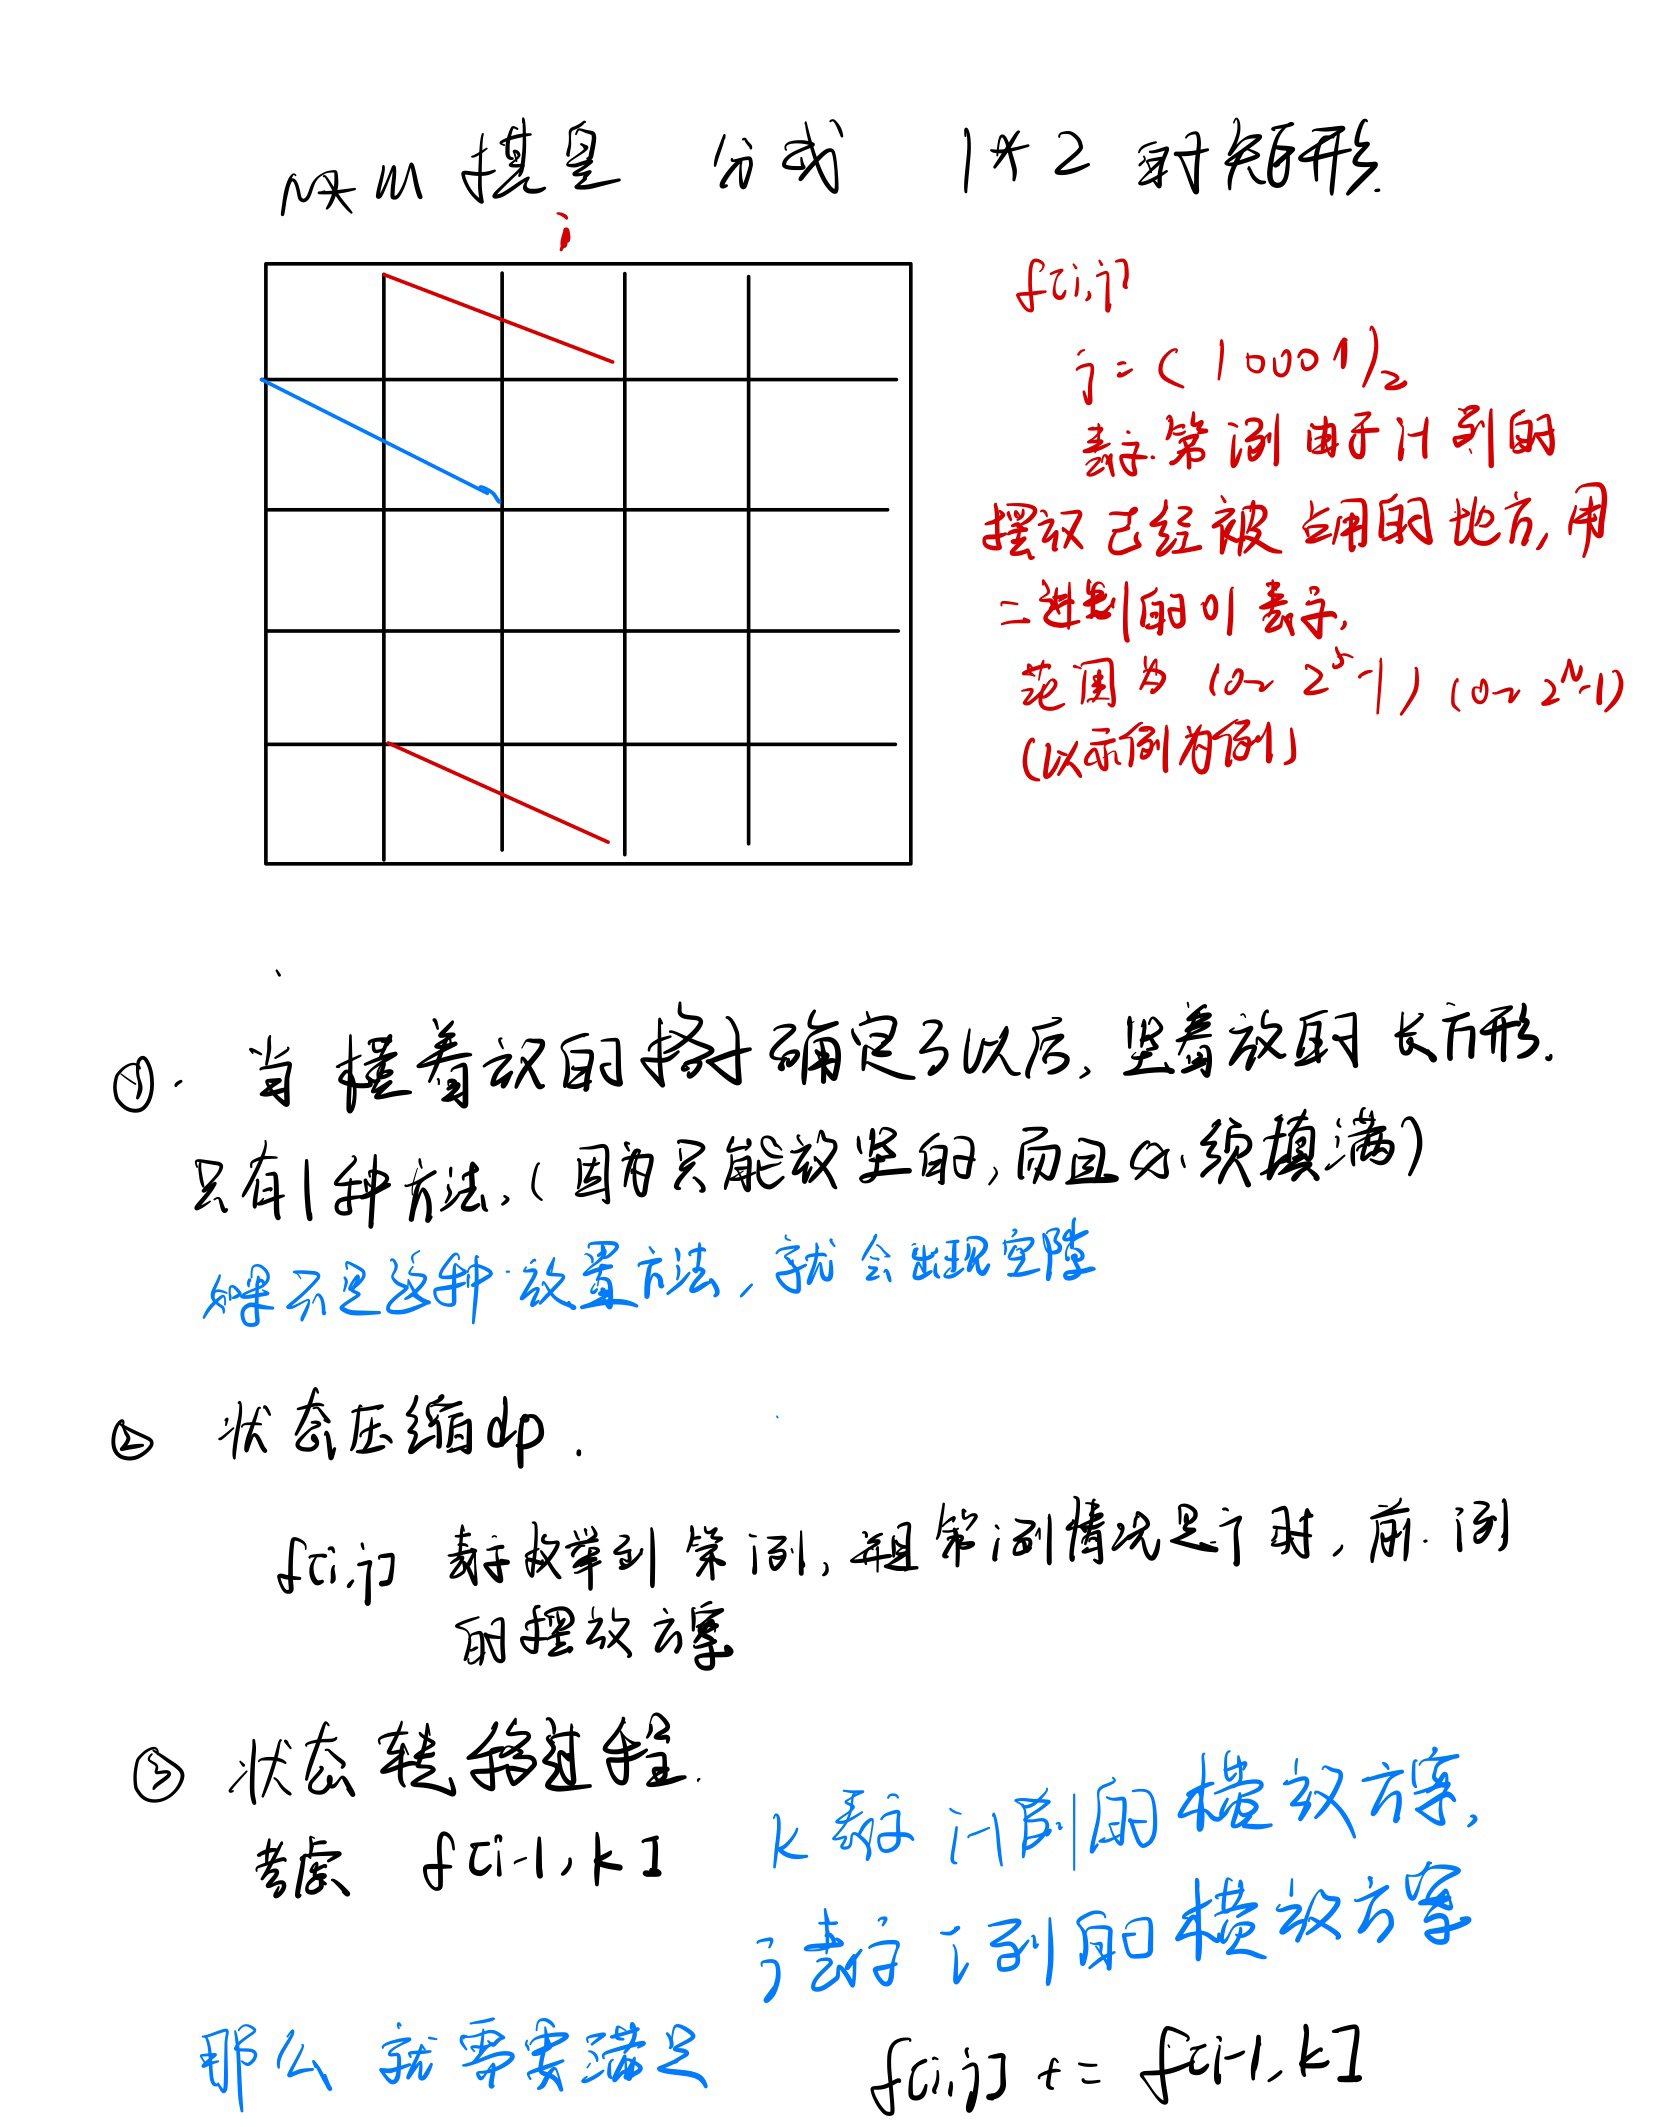 N*M 棋盘 分成 1*2 的矩形.
i
f[i,j]
j=(10001)₂
表示第i列由于i-1列的
摆放已经被占用的地方,用
二进制的01表示,
范围为(0~2⁵-1)(0~2ᴺ-1)
(以示例为例)
①. 当横着放的格子确定了以后,竖着放的长方形.
只有1种方法.(因为只能放竖的,而且必须填满)
如果不是这种放置方法,就会出现空隙
② 状态压缩dp.
f[i,j] 表示枚举到第i列,并且第i列情况是j时,前i列
的摆放方案
③ 状态转移过程.
考虑 f[i-1,k]
k表示i-1列的横放方案,
j表示i列的横放方案
那么就需要满足
f[i,j] += f[i-1,k]